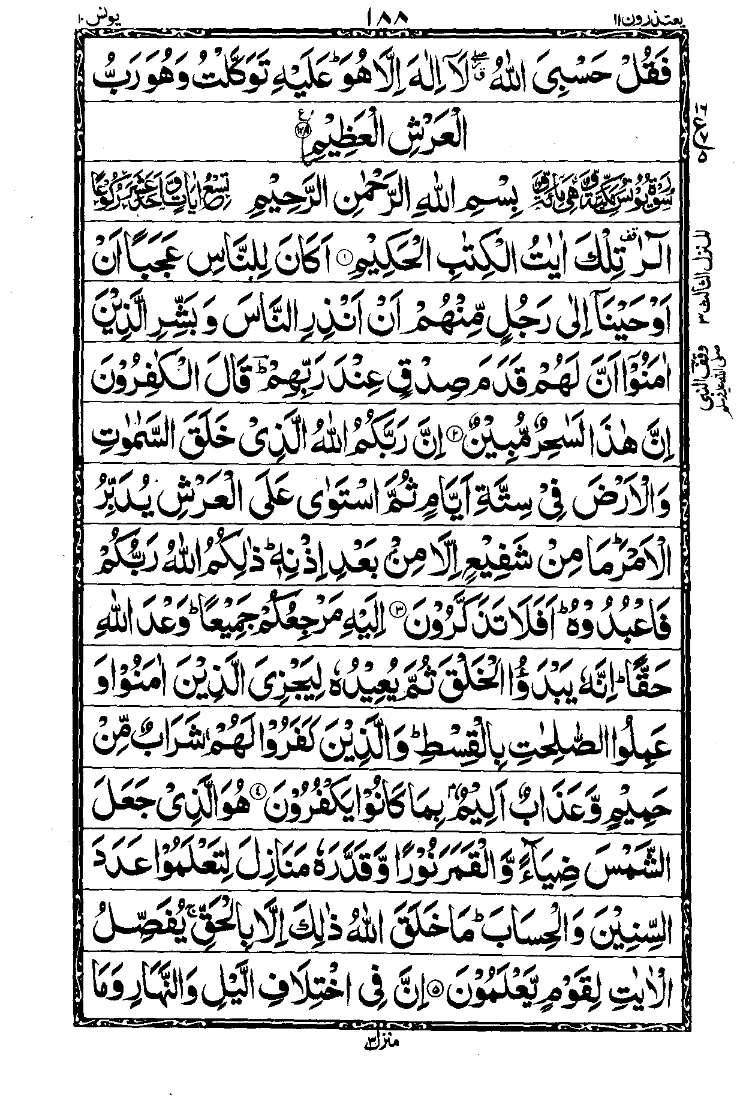 يعتذرون ١١
١٨٨
يونس ١٠
فَقُلْ حَسْبِىَ اللهُ ۖ لَآ اِلٰهَ اِلَّا هُوَ ؕ عَلَيْهِ تَوَكَّلْتُ وَهُوَ رَبُّ
الْعَرْشِ الْعَظِيْمِ ۝۱۲۹
سُوْرَةُ يُوْنُسَ مَكِّيَّةٌ وَّهِىَ مِائَةٌ وَّ بِسْمِ اللهِ الرَّحْمٰنِ الرَّحِيْمِ تِسْعُ اٰيَاتٍ وَّاَحَدَ عَشَرَ رُكُوْعًا
الٓرٰ قف تِلْكَ اٰيٰتُ الْكِتٰبِ الْحَكِيْمِ ۝۱ اَكَانَ لِلنَّاسِ عَجَبًا اَنْ
اَوْحَيْنَآ اِلٰى رَجُلٍ مِّنْهُمْ اَنْ اَنْذِرِ النَّاسَ وَبَشِّرِ الَّذِيْنَ
اٰمَنُوْٓا اَنَّ لَهُمْ قَدَمَ صِدْقٍ عِنْدَ رَبِّهِمْ ؔ قَالَ الْكٰفِرُوْنَ
اِنَّ هٰذَا لَسٰحِرٌ مُّبِيْنٌ ۝۲ اِنَّ رَبَّكُمُ اللهُ الَّذِىْ خَلَقَ السَّمٰوٰتِ
وَالْاَرْضَ فِىْ سِتَّةِ اَيَّامٍ ثُمَّ اسْتَوٰى عَلَى الْعَرْشِ يُدَبِّرُ
الْاَمْرَ ؕ مَا مِنْ شَفِيْعٍ اِلَّا مِنْۢ بَعْدِ اِذْنِهٖ ؕ ذٰلِكُمُ اللهُ رَبُّكُمْ
فَاعْبُدُوْهُ ؕ اَفَلَا تَذَكَّرُوْنَ ۝۳ اِلَيْهِ مَرْجِعُكُمْ جَمِيْعًا ؕ وَعْدَ اللهِ
حَقًّا ؕ اِنَّهٗ يَبْدَؤُا الْخَلْقَ ثُمَّ يُعِيْدُهٗ لِيَجْزِىَ الَّذِيْنَ اٰمَنُوْا وَ
عَمِلُوا الصّٰلِحٰتِ بِالْقِسْطِ ؕ وَالَّذِيْنَ كَفَرُوْا لَهُمْ شَرَابٌ مِّنْ
حَمِيْمٍ وَّعَذَابٌ اَلِيْمٌۢ بِمَا كَانُوْا يَكْفُرُوْنَ ۝۴ هُوَ الَّذِىْ جَعَلَ
الشَّمْسَ ضِيَآءً وَّالْقَمَرَ نُوْرًا وَّقَدَّرَهٗ مَنَازِلَ لِتَعْلَمُوْا عَدَدَ
السِّنِيْنَ وَالْحِسَابَ ؕ مَا خَلَقَ اللهُ ذٰلِكَ اِلَّا بِالْحَقِّ ۚ يُفَصِّلُ
الْاٰيٰتِ لِقَوْمٍ يَّعْلَمُوْنَ ۝۵ اِنَّ فِى اخْتِلَافِ الَّيْلِ وَالنَّهَارِ وَمَا
المنزل الثالث ٣
وقف النبى
صلى الله عليه وسلم
منزل ٣